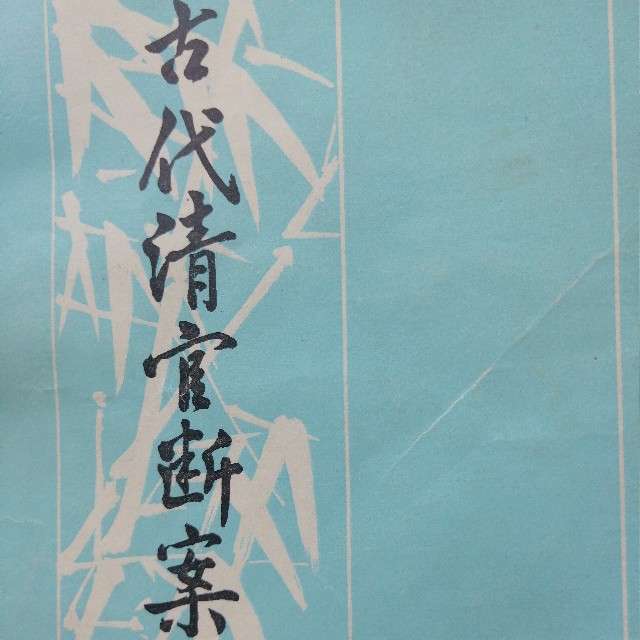 古代清官断案